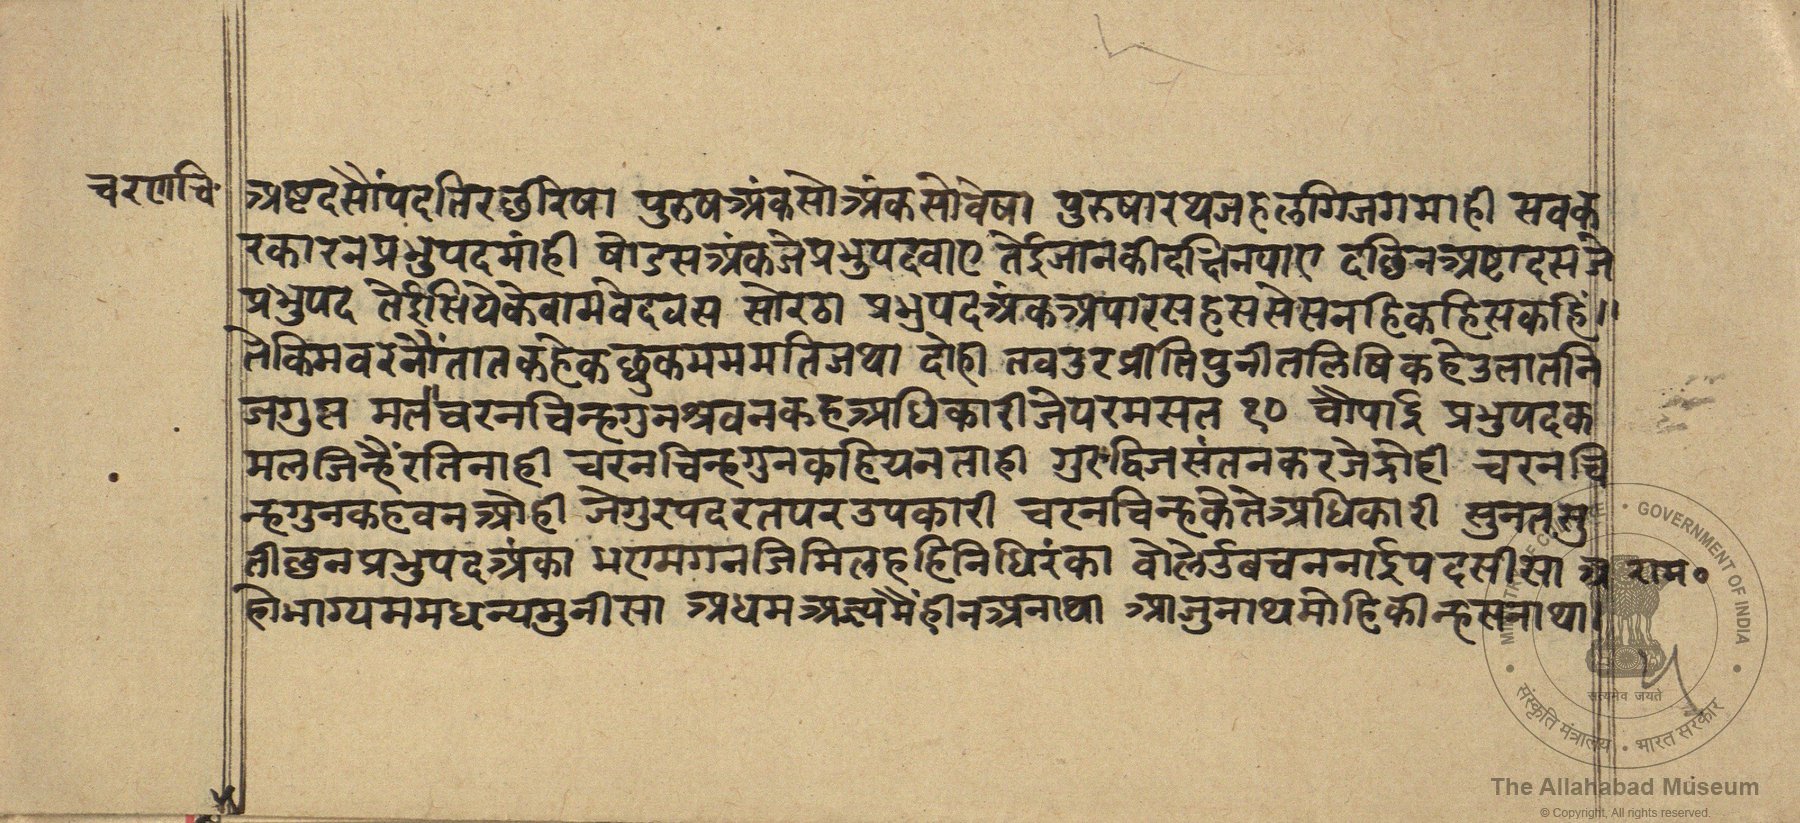 चरणचि॰
अष्टदसौंपदतिरछीरिषा पुरुषअंकसोअंकसोवेषा पुरुषारथजहँलगिजगमाही सवक
रकारनप्रभुपदमांही षोडसअंकजेप्रभुपदवाए तेईजानकीदछिनपाए दछिनअष्टादसजे
प्रभुपद तेईसियैकेवामवेदवस सोरठा प्रभुपदअंकअपारसहससेसनहिकहिसकहिं॥
तेकिमवरनौंतातकहेकछुकममममतिजथा दोहा तवउरप्रीतिपुनीतलषिकहेउतातनि
जगुप्त मत॥चरनचिन्हगुनश्रवनकहअधिकारीजेपरमसत १० चौपाई प्रभुपदक
मलजिन्हैंरतिनाही चरनचिन्हगुनकहियनताही गुरुद्विजसंतनकरजेद्रोही चरनचि
न्हगुनकहेवनओही जेगुरपदरतपरउपकारी चरनचिन्हकेतेअधिकारी सुनतसु
तीछनप्रभुपदअंका भएमगनजिमिलहहिनिधिरंका वोलेउबचननाईपदसीसा अ
राम॰
होभाग्यममधन्यमुनीसा अधमअज्ञमैंहीनअनाथा आजुनाथमोहिकीन्हसनाथा
MINISTRY OF CULTURE • GOVERNMENT OF INDIA
सत्यमेव जयते
संस्कृति मंत्रालय • भारत सरकार
The Allahabad Museum
© Copyright, All rights reserved.